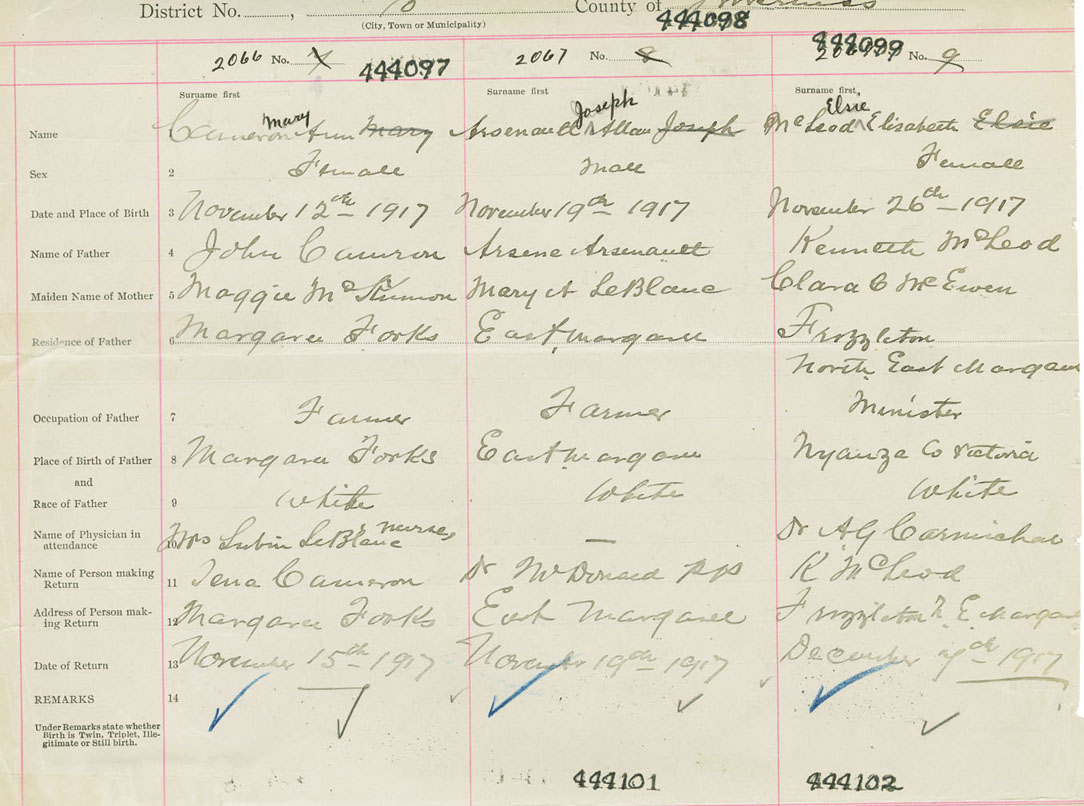 District No. , County of
(City, Town or Municipality)
444098
2066 No. 7 444097 2067 No. 8 444099 No. 9
Surname first Surname first Surname first
Mary Joseph Elsie
Name Cameron Ann Mary Arsenault Allan Joseph McLeod Elisabeth Elsie
Sex 2 Female Male Female
Date and Place of Birth 3 November 12th 1917 November 19th 1917 November 26th 1917
Name of Father 4 John Cameron Arsene Arsenault Kenneth McLeod
Maiden Name of Mother 5 Maggie McKinnon Mary A LeBlanc Clara C McEwen
Residence of Father 6 Margaree Forks East Margaree Frizzleton
North East Margaree
Occupation of Father 7 Farmer Farmer Minister
Place of Birth of Father 8 Margaree Forks East Margaree Nyanza Co Victoria
and
Race of Father 9 White White White
Name of Physician in
attendance 10 Mrs Lubin LeBlanc nurse — Dr A G Carmichael
Name of Person making
Return 11 Tena Cameron Dr McDonald K McLeod
Address of Person mak-
ing Return 12 Margaree Forks East Margaree Frizzleton N. E. Margaree
Date of Return 13 November 15th 1917 November 19th 1917 December 1917
REMARKS 14
Under Remarks state whether
Birth is Twin, Triplet, Ille-
gitimate or Still birth.
444101 444102